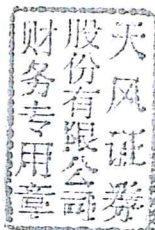 天风证券
股份有限公司
财务专用章